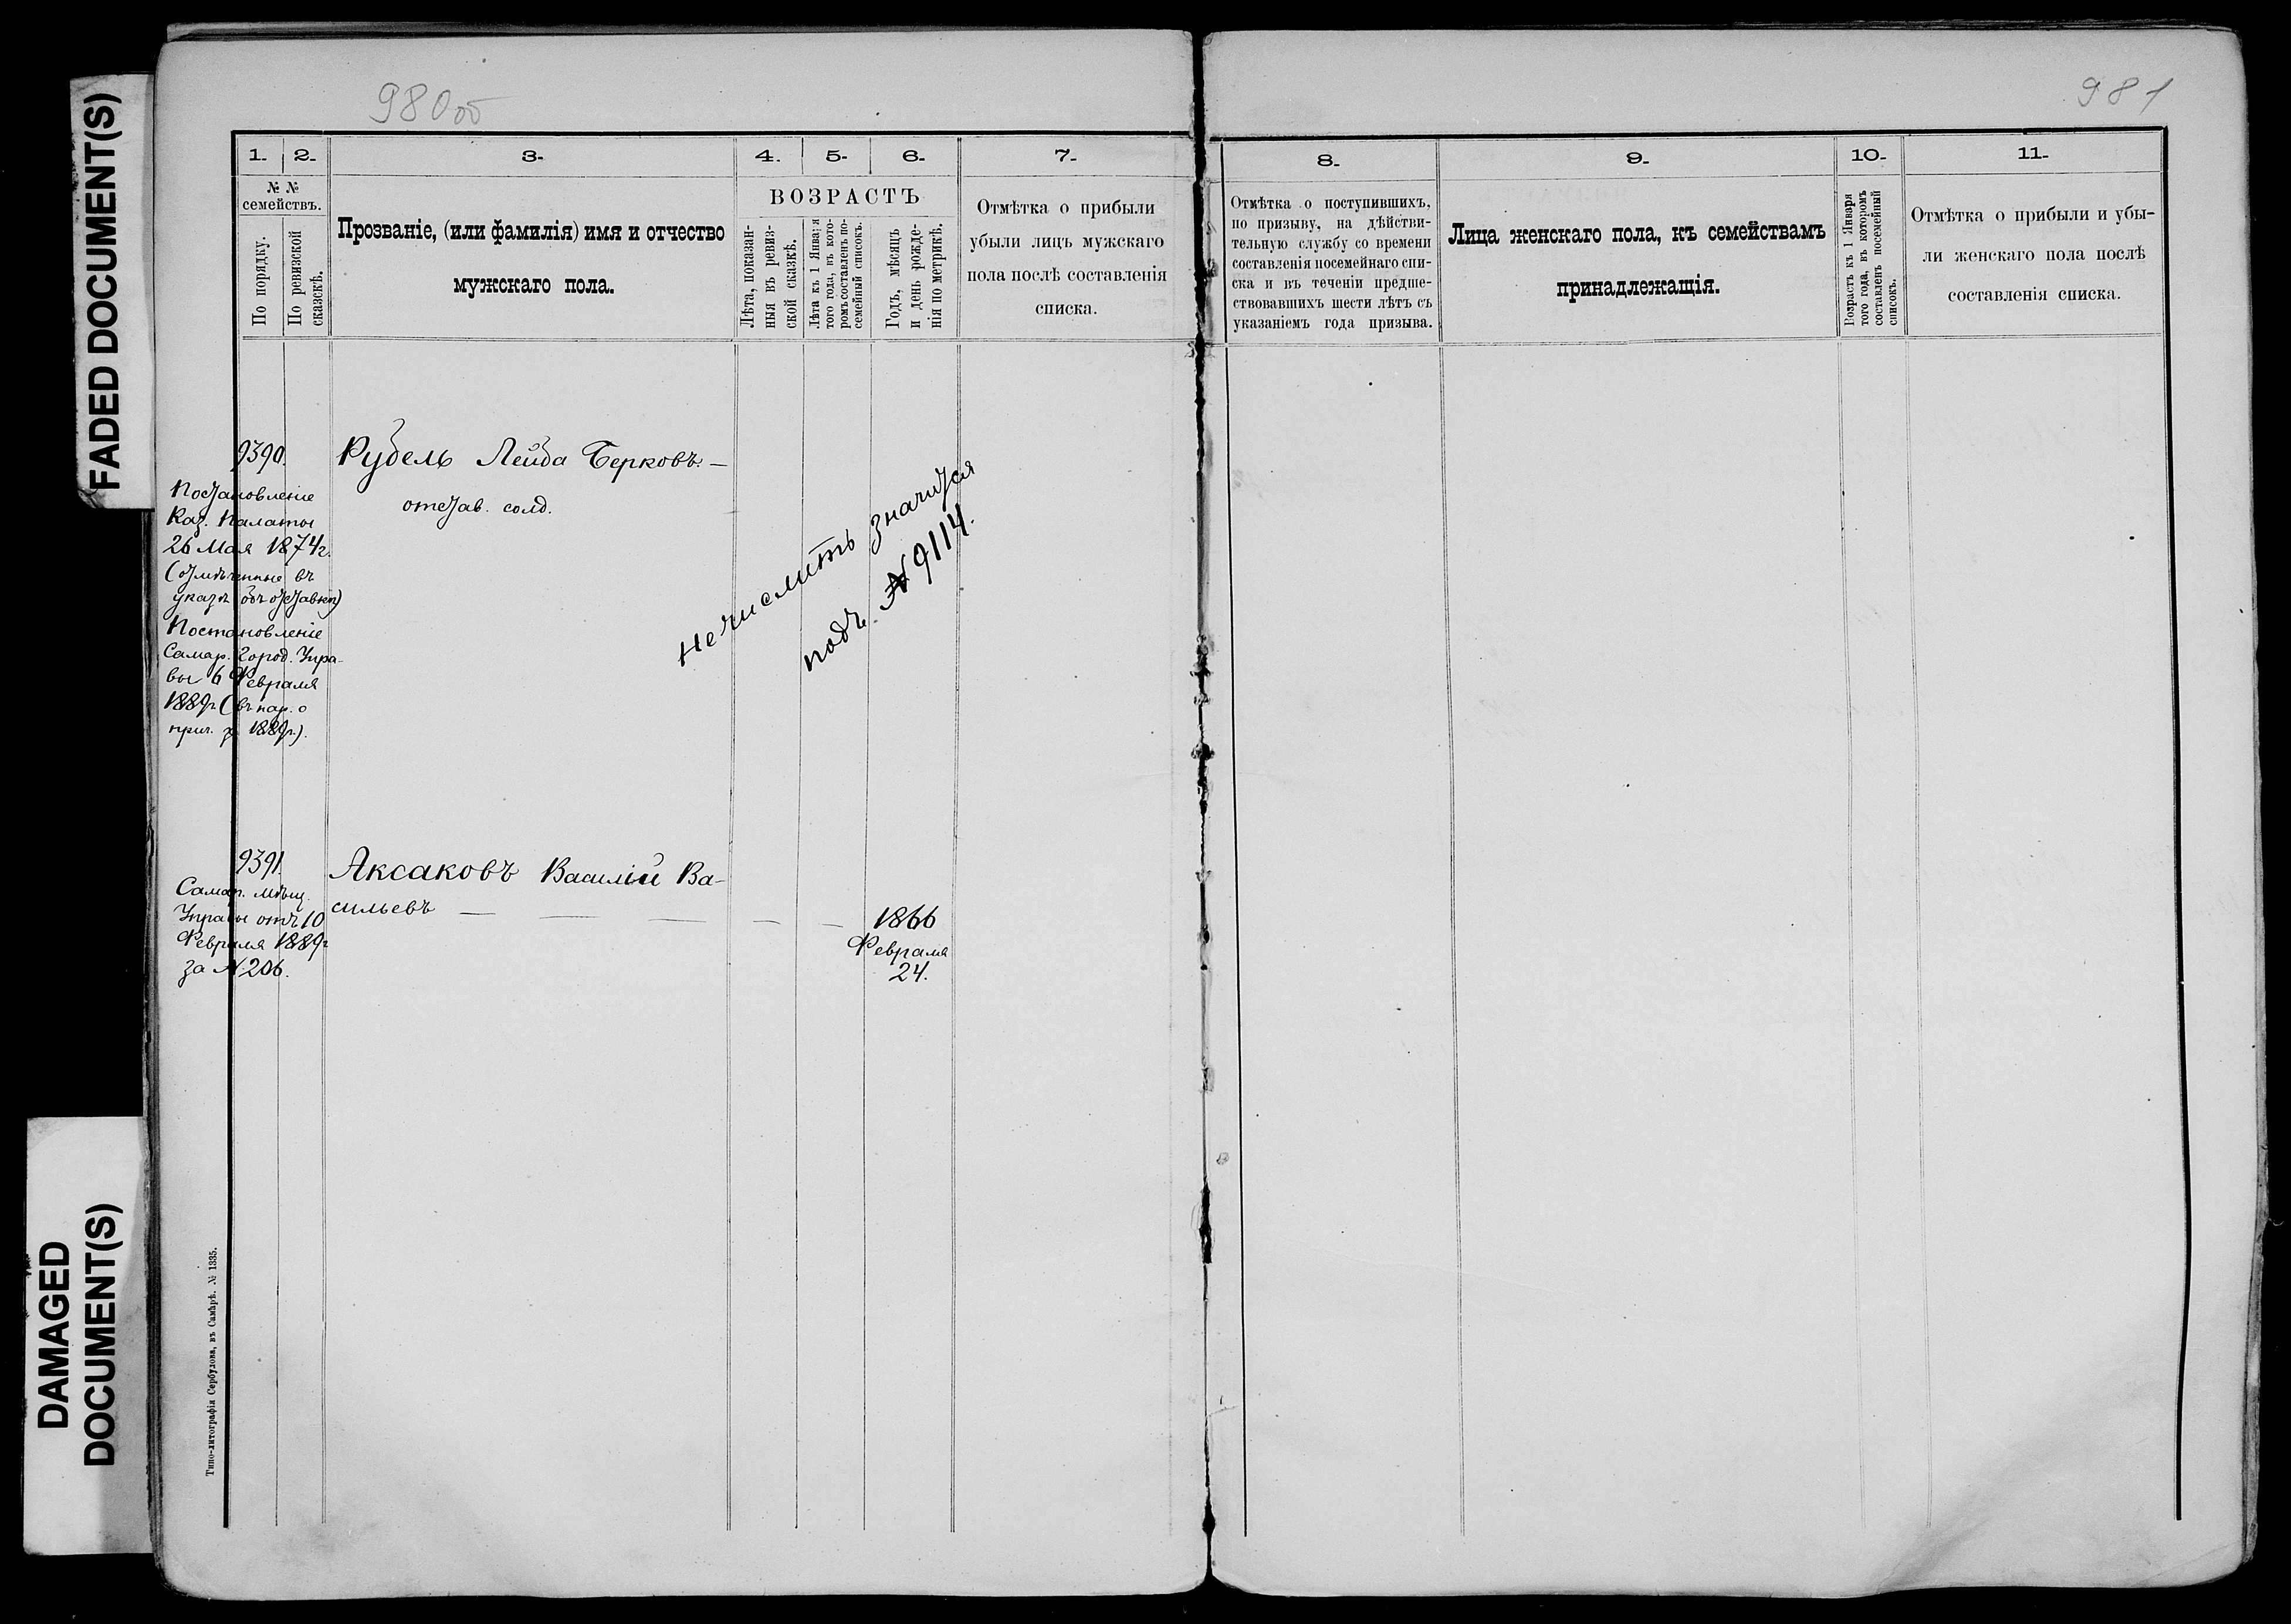 FADED DOCUMENT(S)
DAMAGED
DOCUMENT(S)
980об
1.
2.
3.
4.
5.
6.
7.
№ №
семействъ.
По порядку.
По ревизской
сказскѣ.
Прозваніе, (или фамилія) имя и отчество
мужскаго пола.
ВОЗРАСТЪ
Лѣта, показан-
ныя въ ревиз-
ской сказкѣ.
Лѣта къ 1 Января
того года, въ кото-
ромъ составленъ по-
семейный списокъ.
Годъ, мѣсяцъ
и день рожде-
нія по метрикѣ.
Отмѣтка о прибыли
убыли лицъ мужскаго
пола послѣ составленія
списка.
9390.
Рубель Лейба Берковъ. —
отстав. солд.
Постановленіе
Каз. Палаты
26 Мая 1874г.
(отмѣченные въ
указѣ объ отставкѣ)
Постановленіе
Самар. Город. Упра-
вы 6 Февраля
1889г. (въ нар. о
прич. за 1889г.).
Не числить значится
подъ № 9114.
9391.
Аксаковъ Василій Ва-
сильевъ — — — — —
Самар. мѣщ.
Управы отъ 10
Февраля 1889г
за № 206.
1866
Февраля
24.
Типо-литографія Сербулова, въ Самарѣ. № 1335.
981
8.
9.
10.
11.
Отмѣтка о поступившихъ,
по призыву, на дѣйстви-
тельную службу со времени
составленія посемейнаго спи-
ска и въ теченіи предше-
ствовавшихъ шести лѣтъ съ
указаніемъ года призыва.
Лица женскаго пола, къ семействамъ
принадлежащія.
Возрастъ къ 1 Января
того года, въ которомъ
составленъ посемейный
списокъ.
Отмѣтка о прибыли и убы-
ли женскаго пола послѣ
составленія списка.